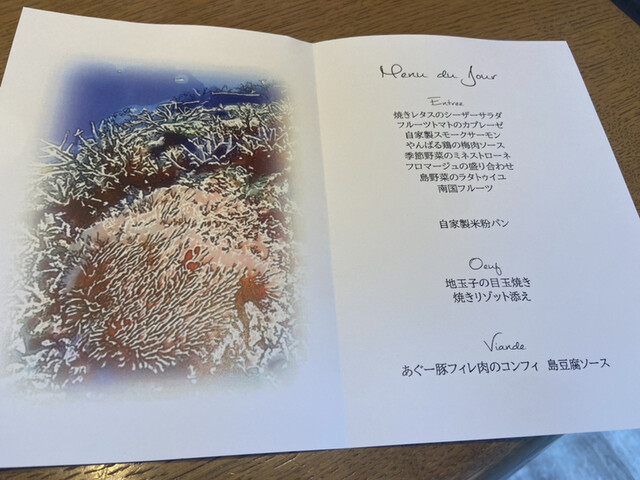 Menu du Jour
Entree
焼きレタスのシーザーサラダ
フルーツトマトのカプレーゼ
自家製スモークサーモン
やんばる鶏の梅肉ソース
季節野菜のミネストローネ
フロマージュの盛り合わせ
島野菜のラタトゥイユ
南国フルーツ
自家製米粉パン
Oeuf
地玉子の目玉焼き
焼きリゾット添え
Viande
あぐー豚フィレ肉のコンフィ 島豆腐ソース